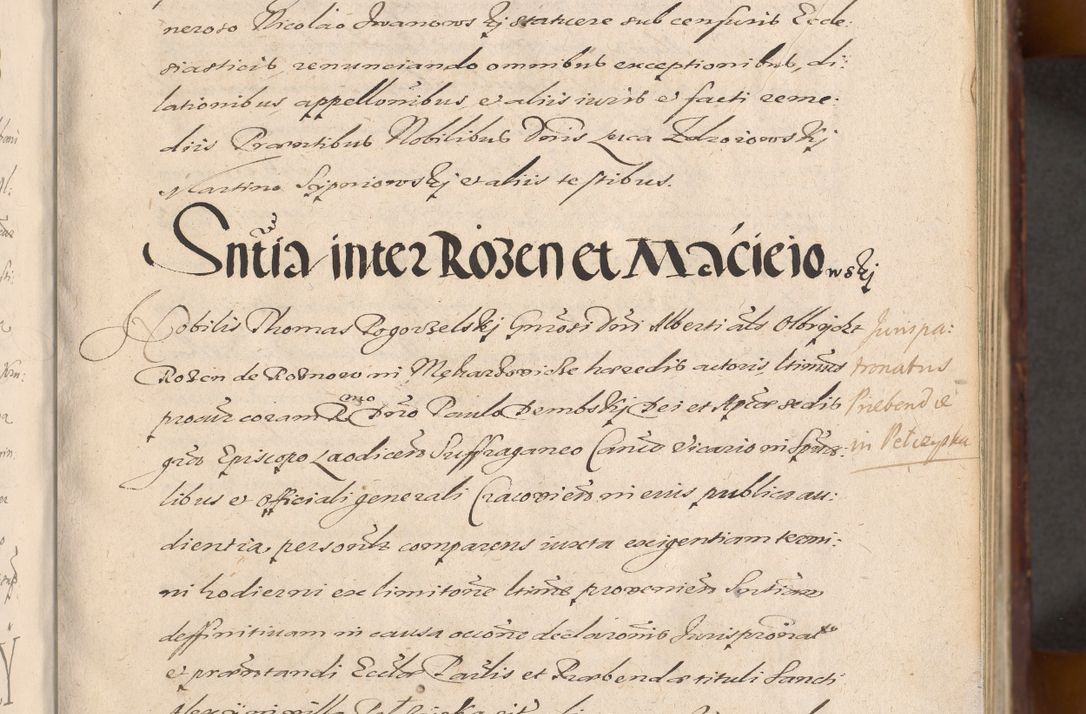 neroso Nicolao Iwanowskj statuere sub censuris Eccle:
siasticis, renunciando omnibus exceptionibus, di:
lationibus, appellōnibus, et aliis iuris et facti reme:
diis Praesentibus Nobilibus Dnis Luca Zdroiowskj
Martino Scipniowskj et aliis testibus.
Sntia inter Rozen et Macieiowskj
Nobilis Thomas Pogorzelskj Gnrosi Dni Alberti als Olbrycht
Rozen de Roznowo in haeredis actoris ltimus
procur coram Rmo Dno Paulo Dembskj Dei et Aplcae sedis
gra Episcopo Laodicen Suffraganeo Canco Vicario in Spua:
libus et officiali generali Cracovien in eius publica au:
dientia personlr comparens iuxta exigentiam termi:
ni hodierni ex limitone ltime provenien Sntiam
deffinitivam in causa occone declaronis Jurispronatus
et prntandi Ecclae Parlis et Praebendae tituli Sancti
Jurispa:
tronatus
Prebendae
in Pelczyska